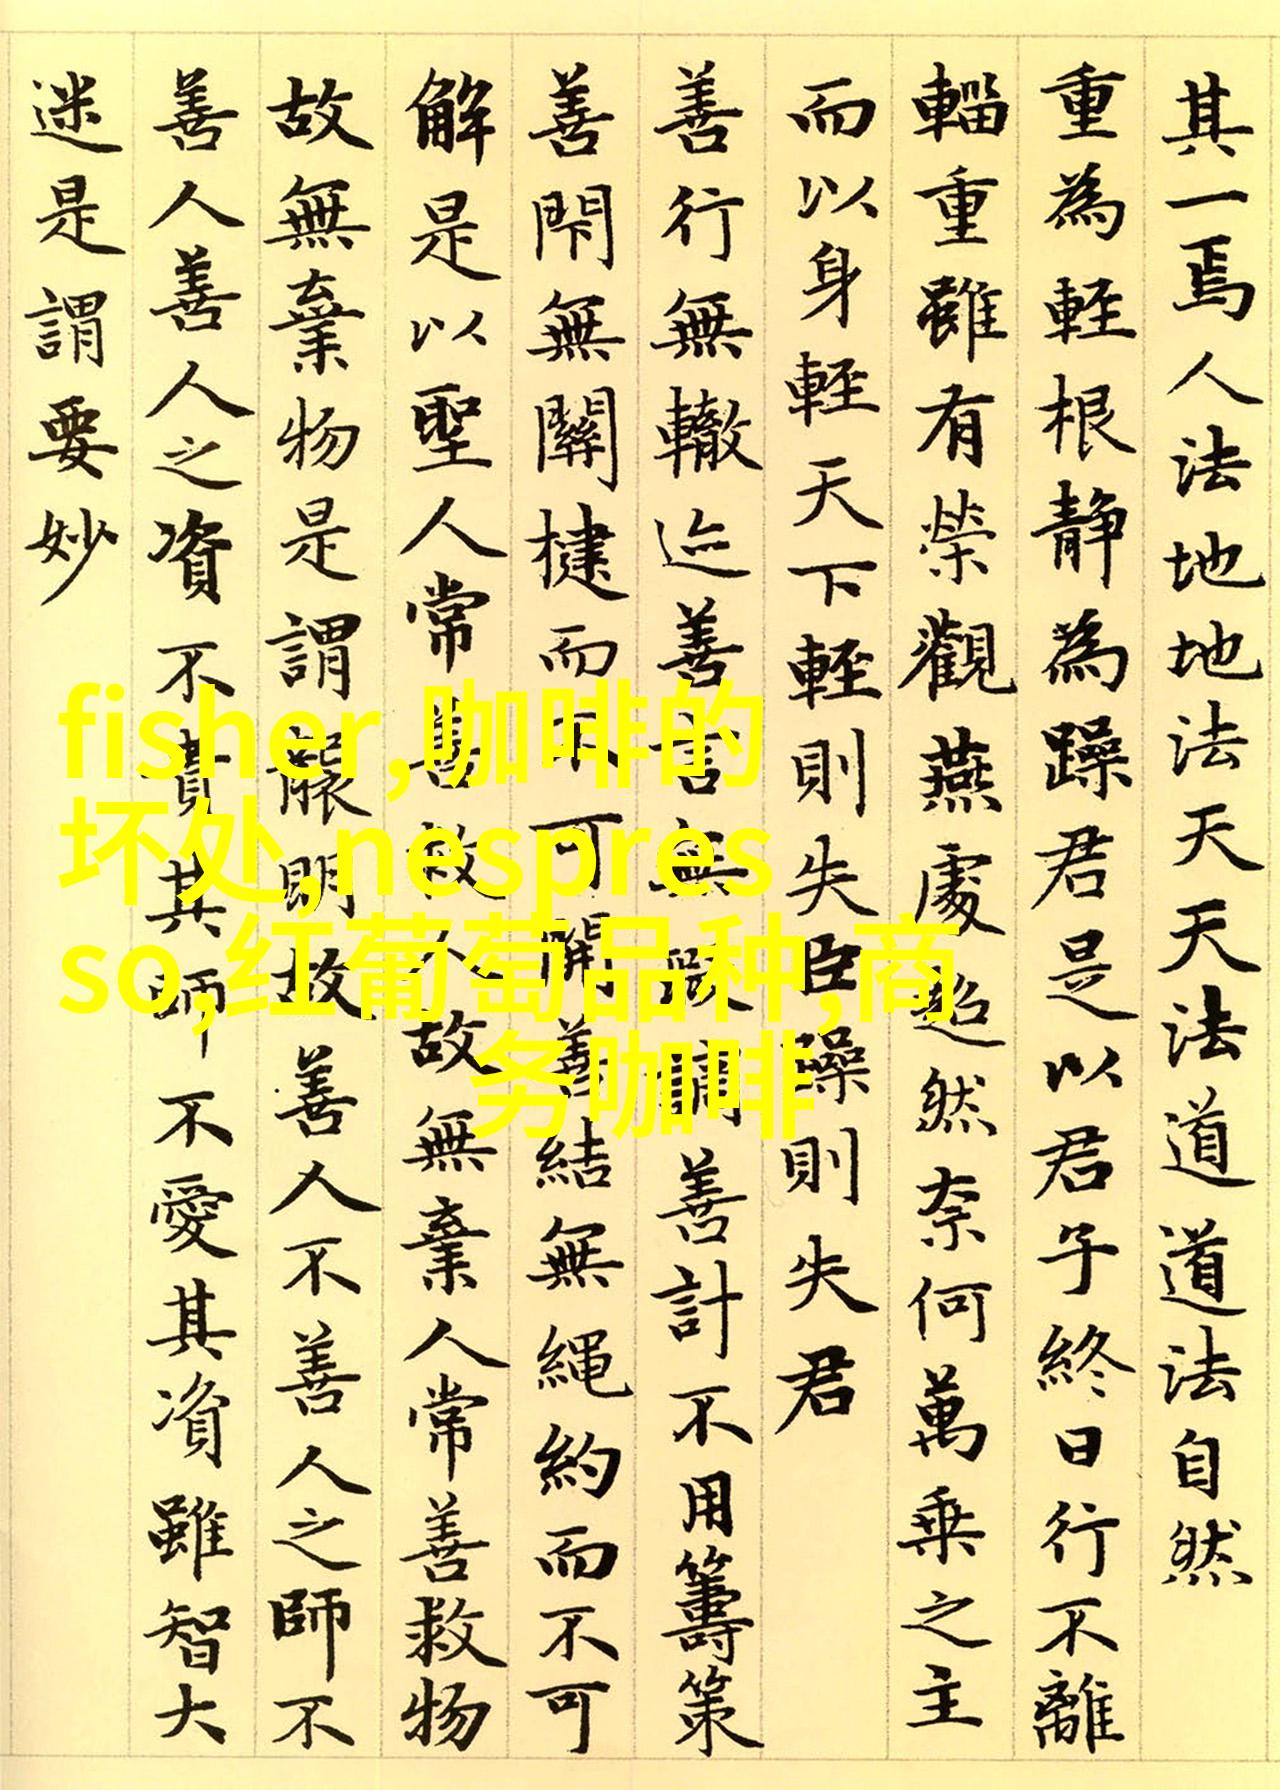 其一焉人法地地法天天法道道法自然
重為輕根静為躁君是以君子終日行不離
輜重雖有榮觀燕處超然奈何萬乘之主
而以身輕天下輕則失臣躁則失君
善行無轍迹善言無瑕謫善計不用籌策
善閇無關楗而不可開善結無繩約而不可
解是以聖人常善救人故無棄人常善救物
故無棄物是謂襲明故善人不善人之師不
善人善人之資不貴其師不愛其資雖智大
迷是謂要妙
fisher,咖啡的
坏处,nespres
so,红葡萄品种,商
务咖啡